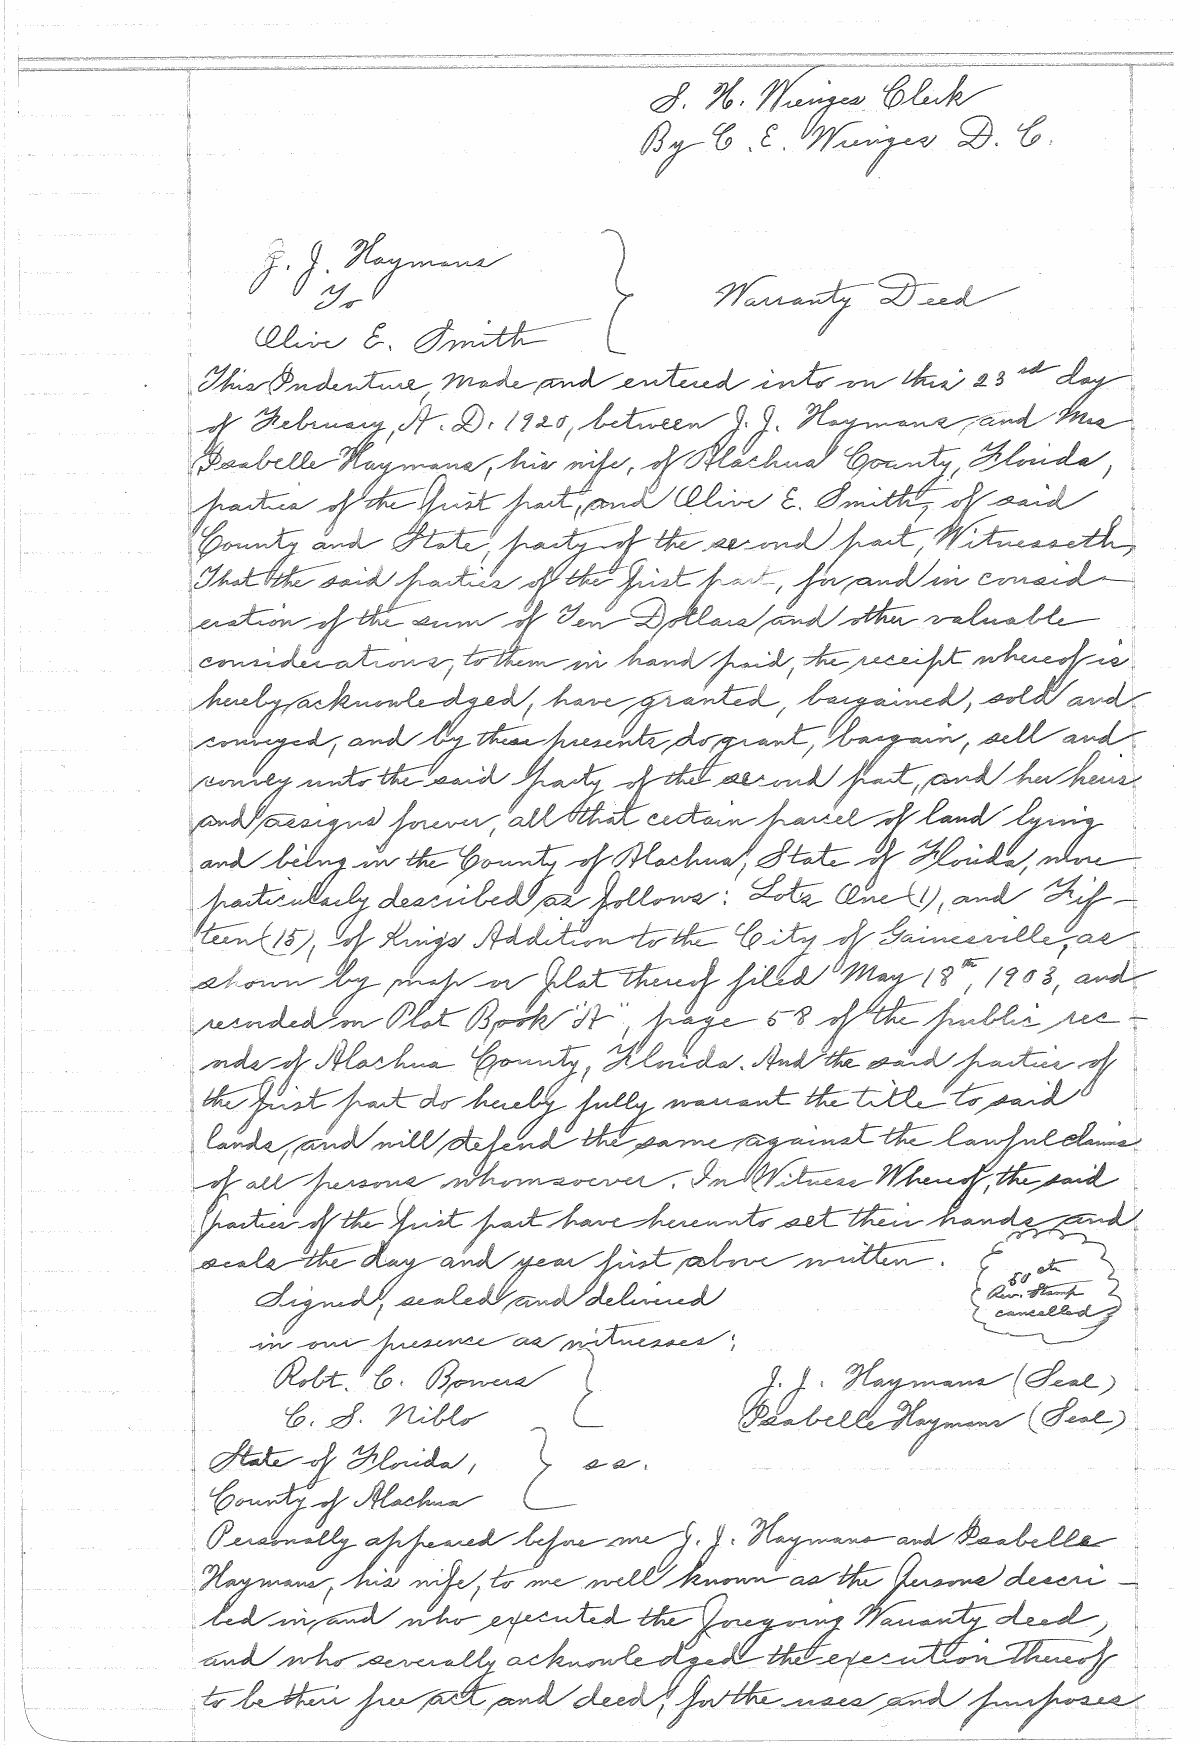 S. H. Wienges Clerk
By C. E. Wienges D. C.
J. J. Haymans
To
Olive E. Smith
Warranty Deed
This Indenture, Made and entered into on this 23rd day
of February, A. D. 1920, between J. J. Haymans, and Mrs
Isabelle Haymans, his wife, of Alachua County, Florida,
parties of the first part, and Olive E. Smith, of said
County and State, party of the second part, Witnesseth,
That the said parties of the first part, for and in consid-
eration of the sum of Ten Dollars and other valuable
considerations, to them in hand paid, the receipt whereof is
hereby acknowledged, have granted, bargained, sold and
conveyed, and by these presents, do grant, bargain, sell and
convey unto the said party of the second part, and her heirs
and assigns forever, all that certain parcel of land lying
and being in the County of Alachua, State of Florida, more
particularly described as follows: Lots One (1), and Fif-
teen (15), of Kings Addition to the City of Gainesville, as
shown by map or plat thereof filed May 18th, 1903, and
recorded on Plat Book "A", page 58 of the public rec-
ords of Alachua County, Florida. And the said parties of
the first part do hereby fully warrant the title to said
lands, and will defend the same against the lawful claims
of all persons whomsoever. In Witness Whereof, the said
parties of the first part have hereunto set their hands and
seals the day and year first above written.
50 cts
Rev. Stamp
cancelled
Signed, sealed and delivered
in our presence as witnesses:
Robt. C. Bowers
C. S. Niblo
J. J. Haymans (Seal)
Isabelle Haymans (Seal)
State of Florida,
County of Alachua
s s.
Personally appeared before me J. J. Haymans and Isabella
Haymans, his wife, to me well known as the persons descri-
bed in, and who executed the foregoing Warranty deed,
and who severally acknowledged the execution thereof
to be their free act, and deed, for the uses and purposes